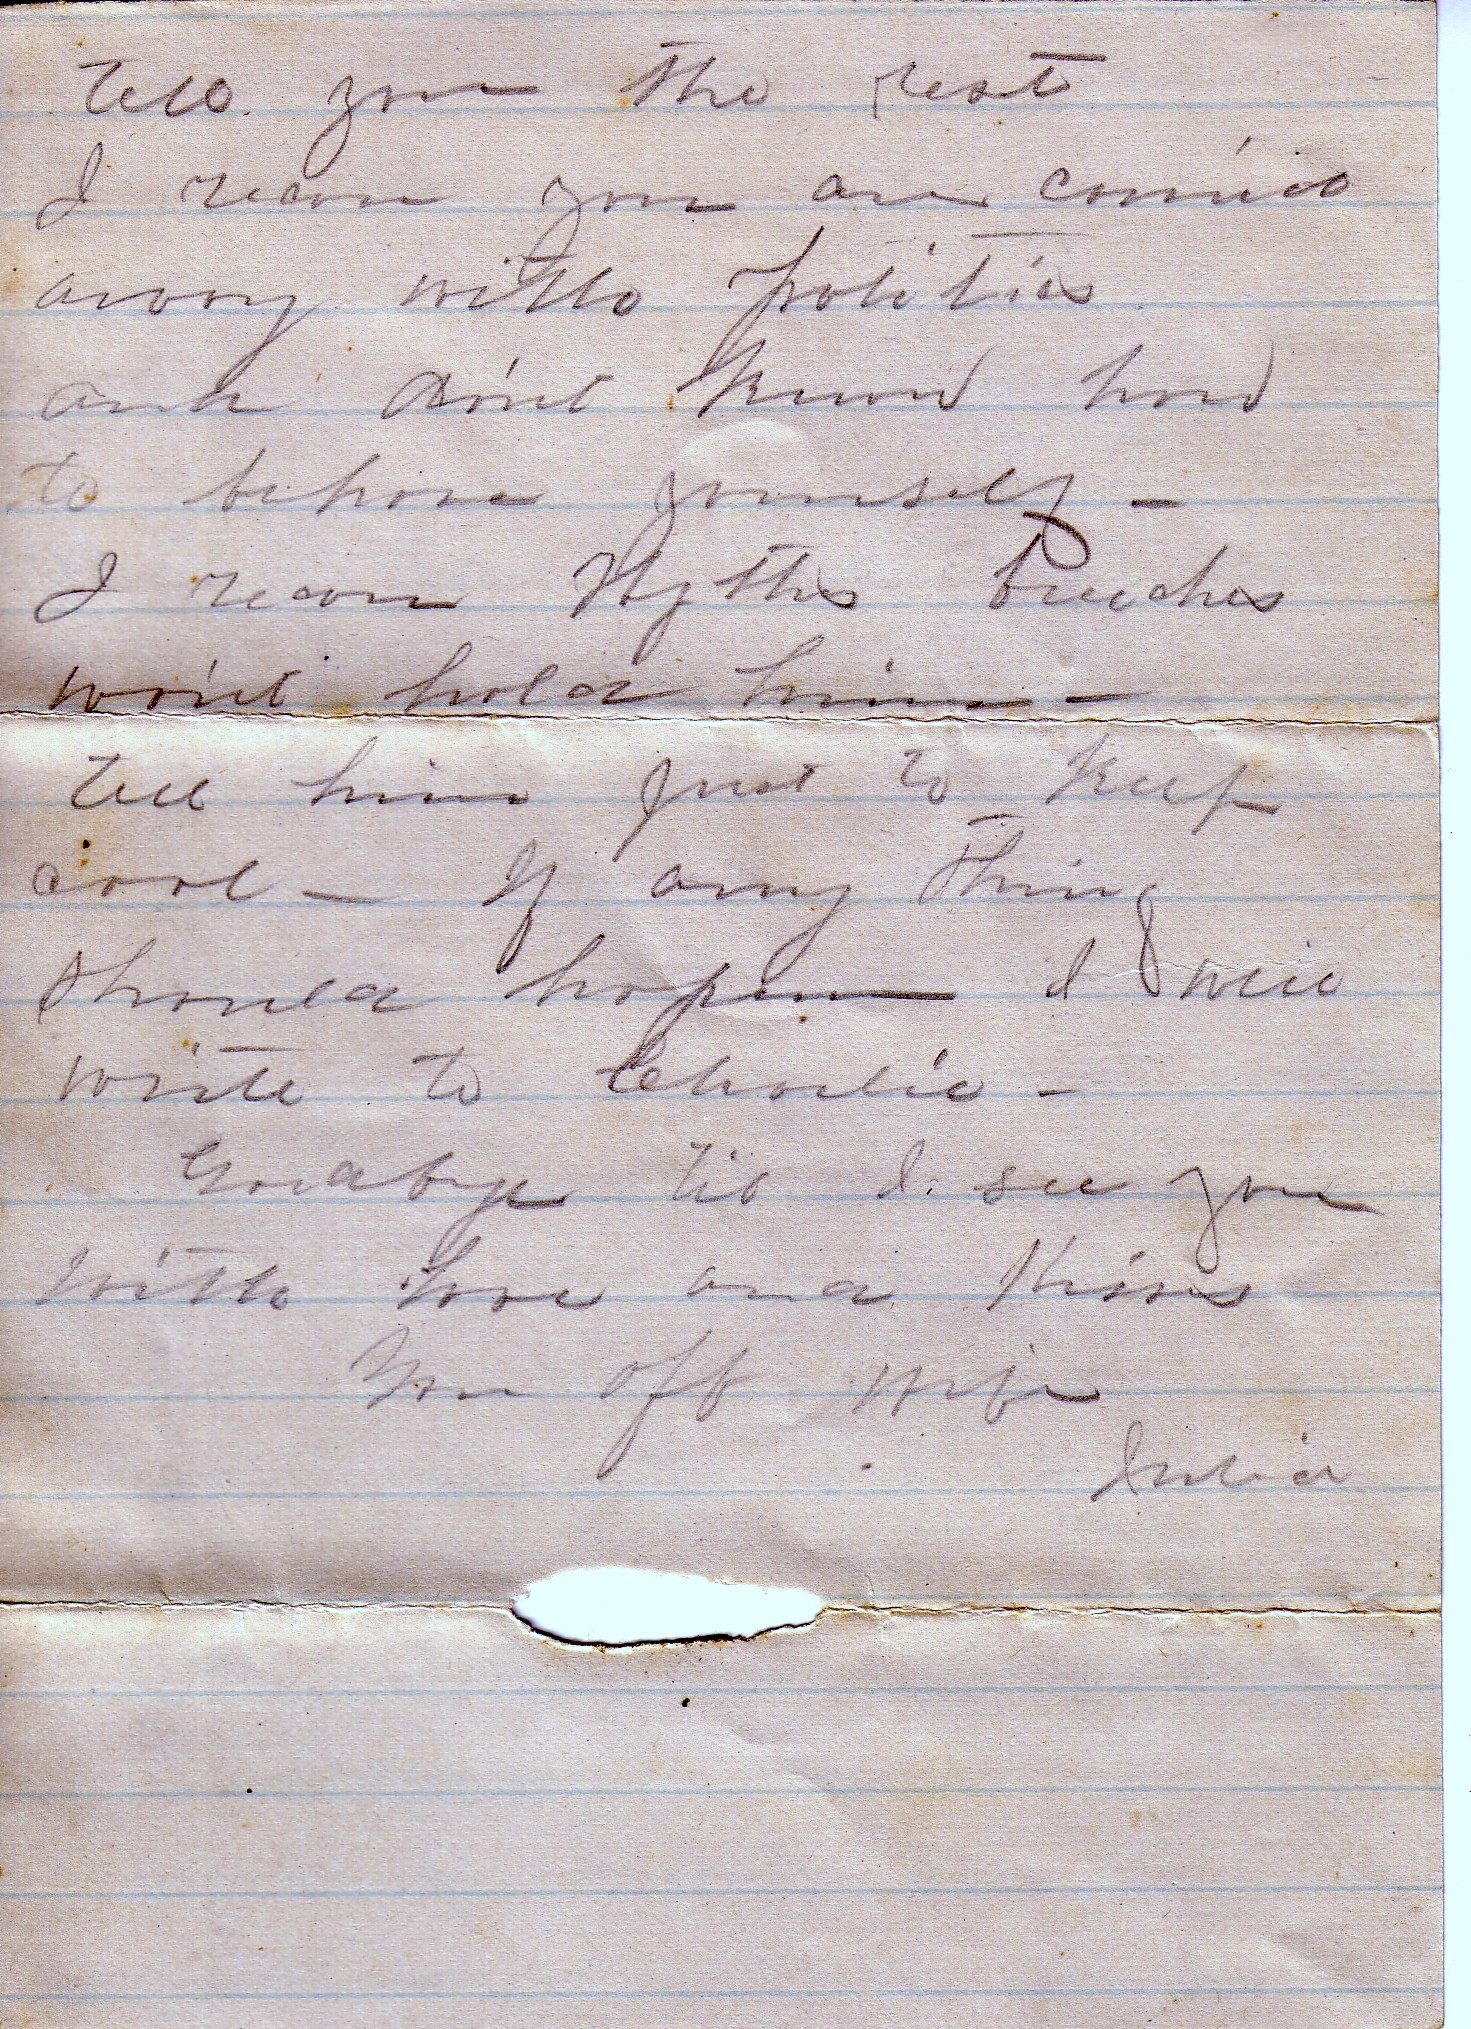 tell you the rest
I recon you are carried
away with politics
and don't know how
to behave yourself –
I recon breeches
won't hold him –
tell him just to keep
cool – If any thing
should hapen I will
write to Charlie –
Goodbye til I see you
with love and kisses
Your aff wife
Julia